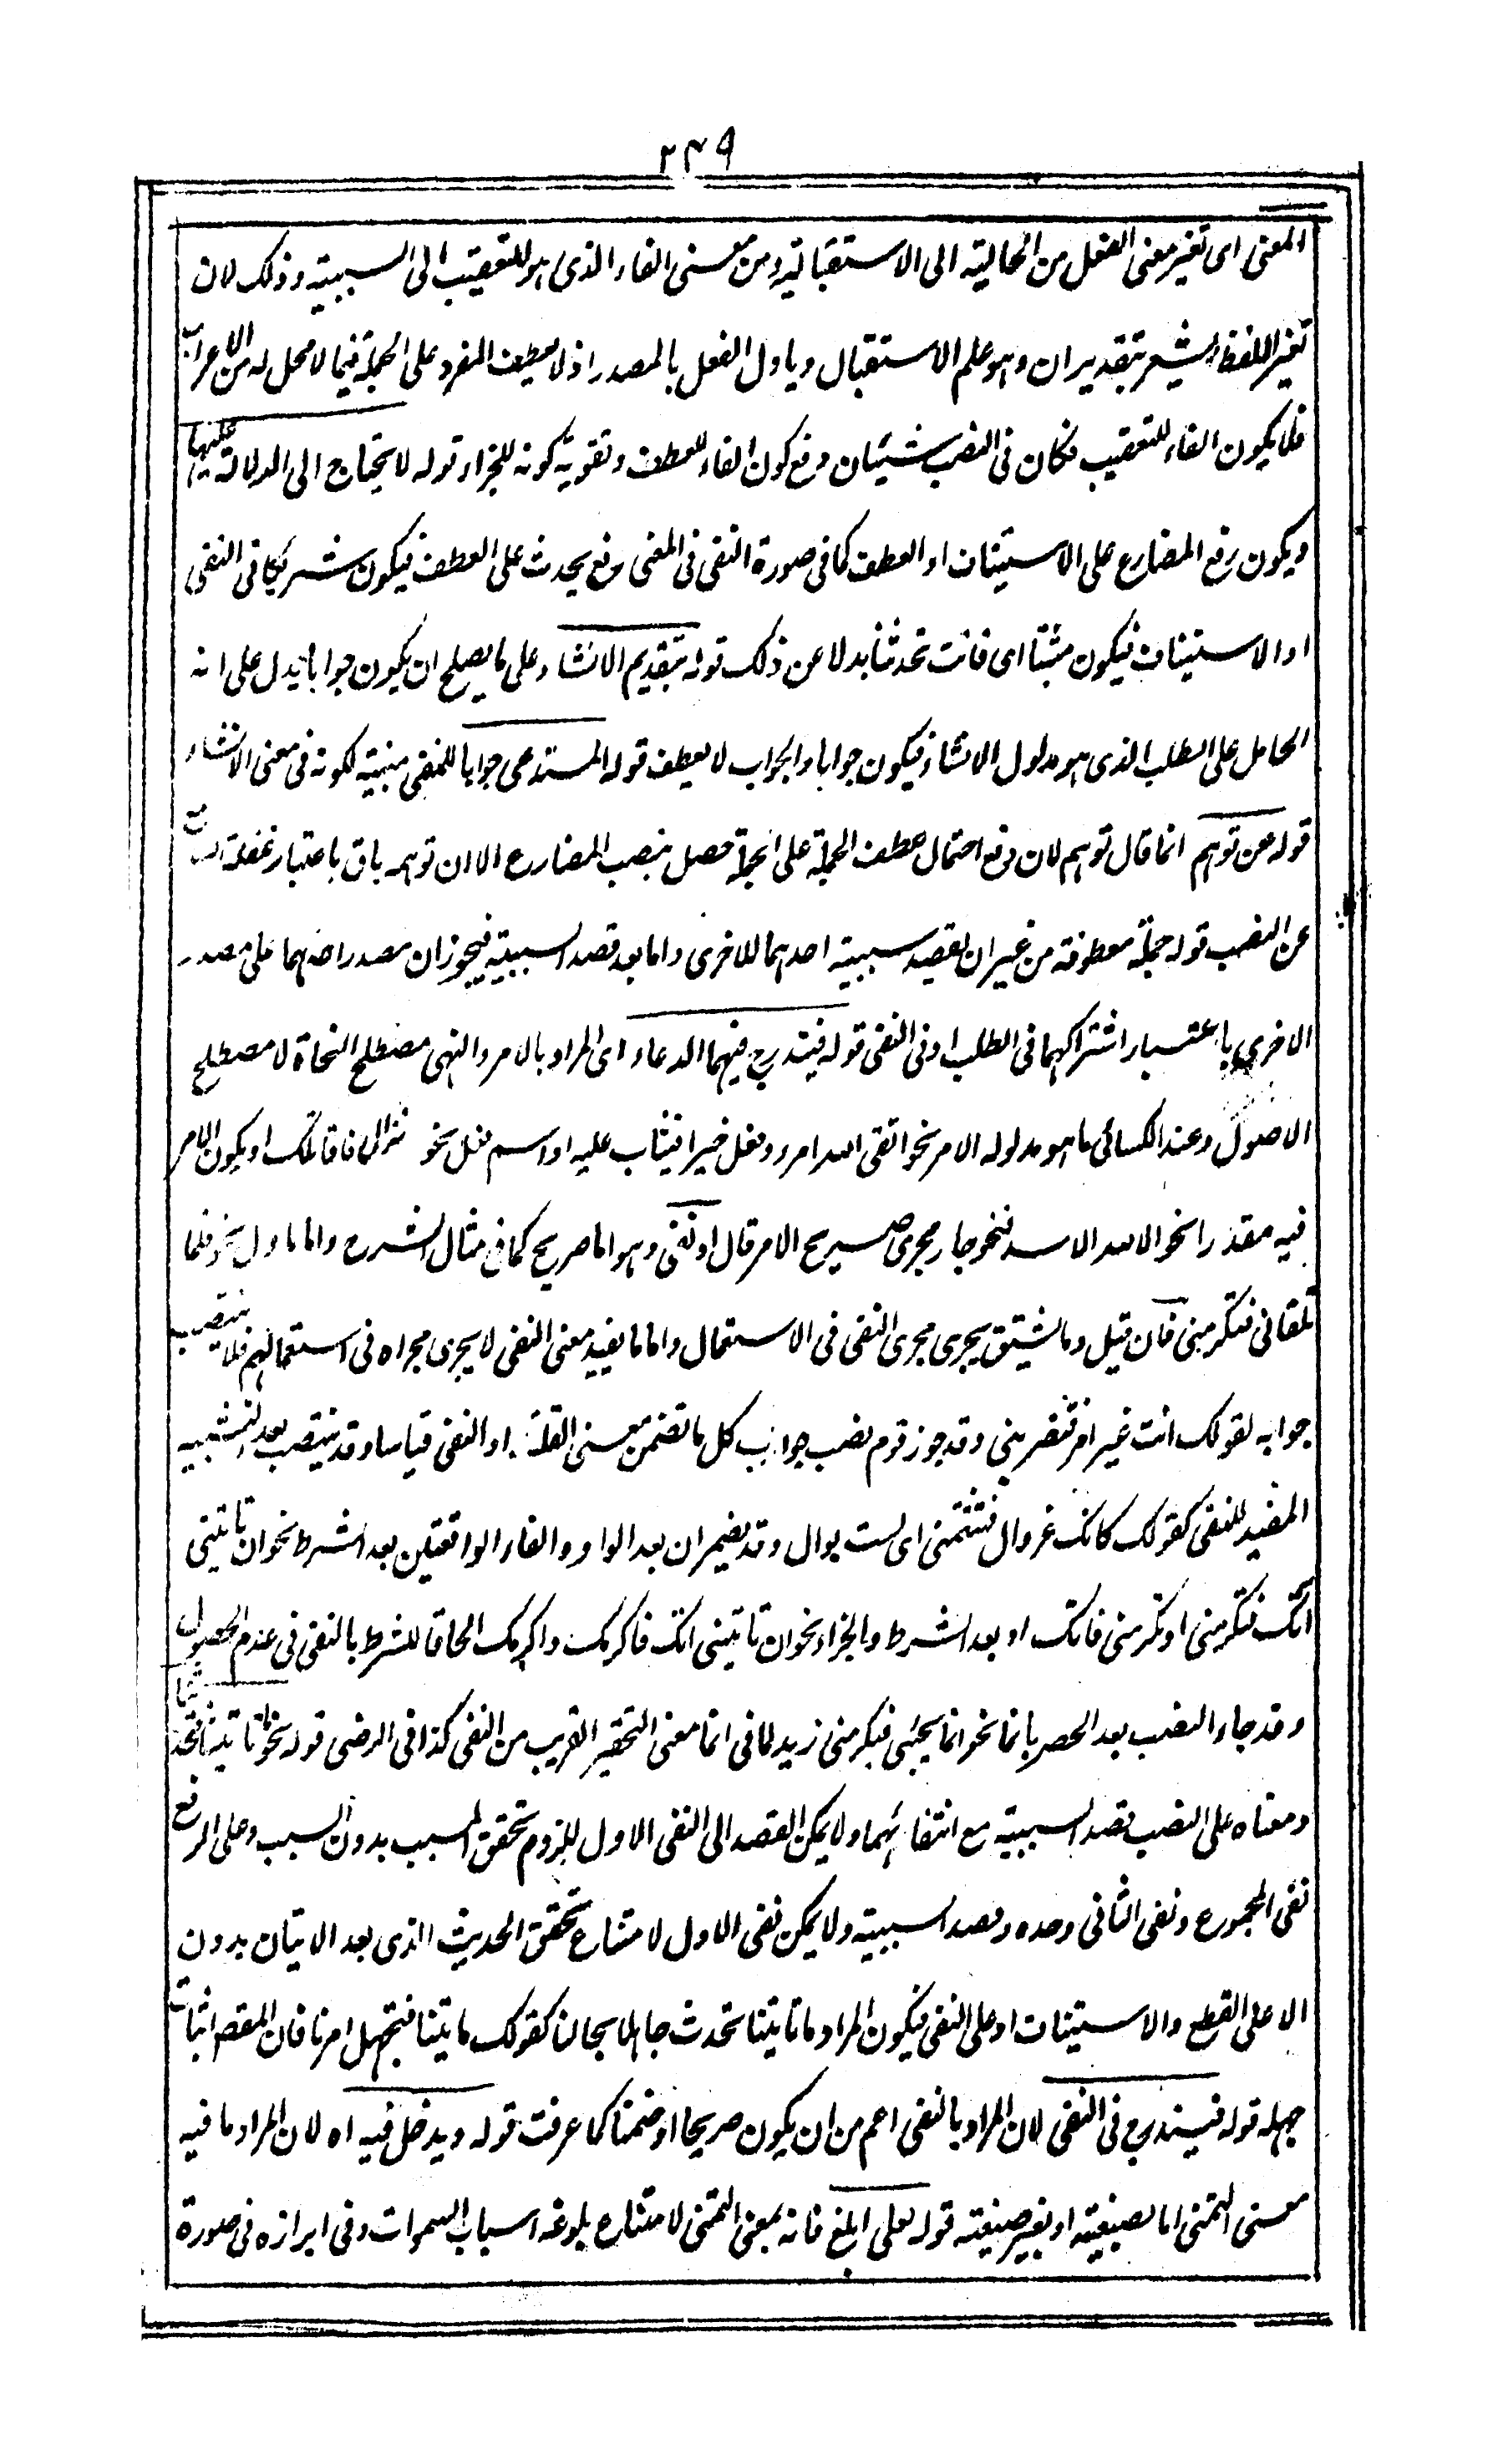 ٢٣٩
المعنى اى تغير معنى الفعل من الحالية الى الاستقبالية ومن معنى الفاء الذى هو للتعقيب الى السببية وذلك لان
تغير اللفظ يشعر بتقدير ان وهو علم الاستقبال ويأول الفعل بالمصدر اذ لا يعطف المفرد على الجملة فيما لا محل له من الاعراب
فلا يكون الفاء للتعقيب فكان فى النصب شيئان دفع كون الفاء للعطف وتقوية كونه للجزاء قوله لا يحتاج الى الدلالة عليها
ويكون رفع المضارع على الاستيناف او العطف كما فى صورة النفى فى المغنى رفع يحدث على العطف فيكون شريكا فى النفى
او الاستيناف فيكون مثبتا اى فانت تحدثنا بدلا عن ذلك قوله بتقديم الانشاء على ما يصلح ان يكون جوابا يدل على انه
الحامل على الطلب الذى هو مدلول الانشاء فيكون جوابا والجواب لا يعطف قوله المستدعى جوابا للنفى منبئة لكونه فى معنى الانشاء
قوله عن توهم انما قال توهم لان دفع احتمال عطف الجملة على الجملة حصل بنصب المضارع الا ان توهمه باق باعتبار غفلة
عن النصب قوله جملة معطوفة من غير ان يقصد سببية احدهما للاخرى واما بعد قصد السببية فيجوز ان مصدر احدهما على مصدر
الاخرى باعتبار اشتراكهما فى الطلب او فى النفى قوله فيندرج فيهما الدعاء اى المراد بالامر والنهى مصطلح النحاة لا مصطلح
الاصول وعند الكسائى ما هو مدلوله الامر نحو اتقى الله امرء وفعل خيرا فيثاب عليه او اسم فعل نحو نزال فاقاتلك او يكون الامر
فيه مقدرا نحو الاسد الاسد فتنجو جار مجرى صريح الامر قال او نفى وهو اما صريح كما فى مثال الشرح واما ماول نحو قلما
تلقانى فتكرمنى فان قيل وما يشتق يجرى مجرى النفى فى الاستعمال واما ما يفيد معنى النفى لا يجرى مجراه فى استعمالهم فلا ينتصب
جوابه لقولك انت غير امر فتضربنى وقد جوز قوم نصب جواب كل ما تضمن معنى القلة او النفى قياسا وقد ينتصب بعد التشبيه
المفيد للنفى كقولك كانك غير وال فتشتمنى اى لست بوال وقد يضمر ان بعد الواو والفاء الواقعتين بعد الشرط نحو ان تاتينى
آتك فتكرمنى او تكرمنى فاتك او بعد الشرط والجزاء نحو ان تاتينى اتك فاكرمك واكرمك الحاقا للشرط بالنفى فى عدم الحصول
وقد جاء النصب بعد الحصر بانما نحو انما يجيئى فيكرمنى زيد لما فى انما معنى التحقير القريب من النفى كذا فى الرضى قوله نحو ما تاتينا فتحدثنا
ومعناه على النصب قصد السببية مع انتفائهما ولا يمكن القصد الى النفى الاول للزوم تحقق المسبب بدون السبب وعلى الرفع
نفى المجموع ونفى الثانى وحده وقصد السببية ولا يمكن نفى الاول لامتناع تحقق الحديث الذى بعد الاتيان بدون
الا على القطع والاستيناف او على النفى فيكون المراد ما تاتينا تحدث جاهلا بحالنا كقولك ما يتنا فتجهل امرنا فان المقصد اثبات
جهله قوله فيندرج فى النفى لان المراد بالنفى اعم من ان يكون صريحا او ضمنا كما عرفت قوله ويدخل فيه اه لان المراد ما فيه
معنى التمنى اما بصيغته او بغير صيغته قوله لعلى ابلغ فانه بمعنى التمنى لامتناع بلوغه اسباب السموات وفى ابرازه فى صورة